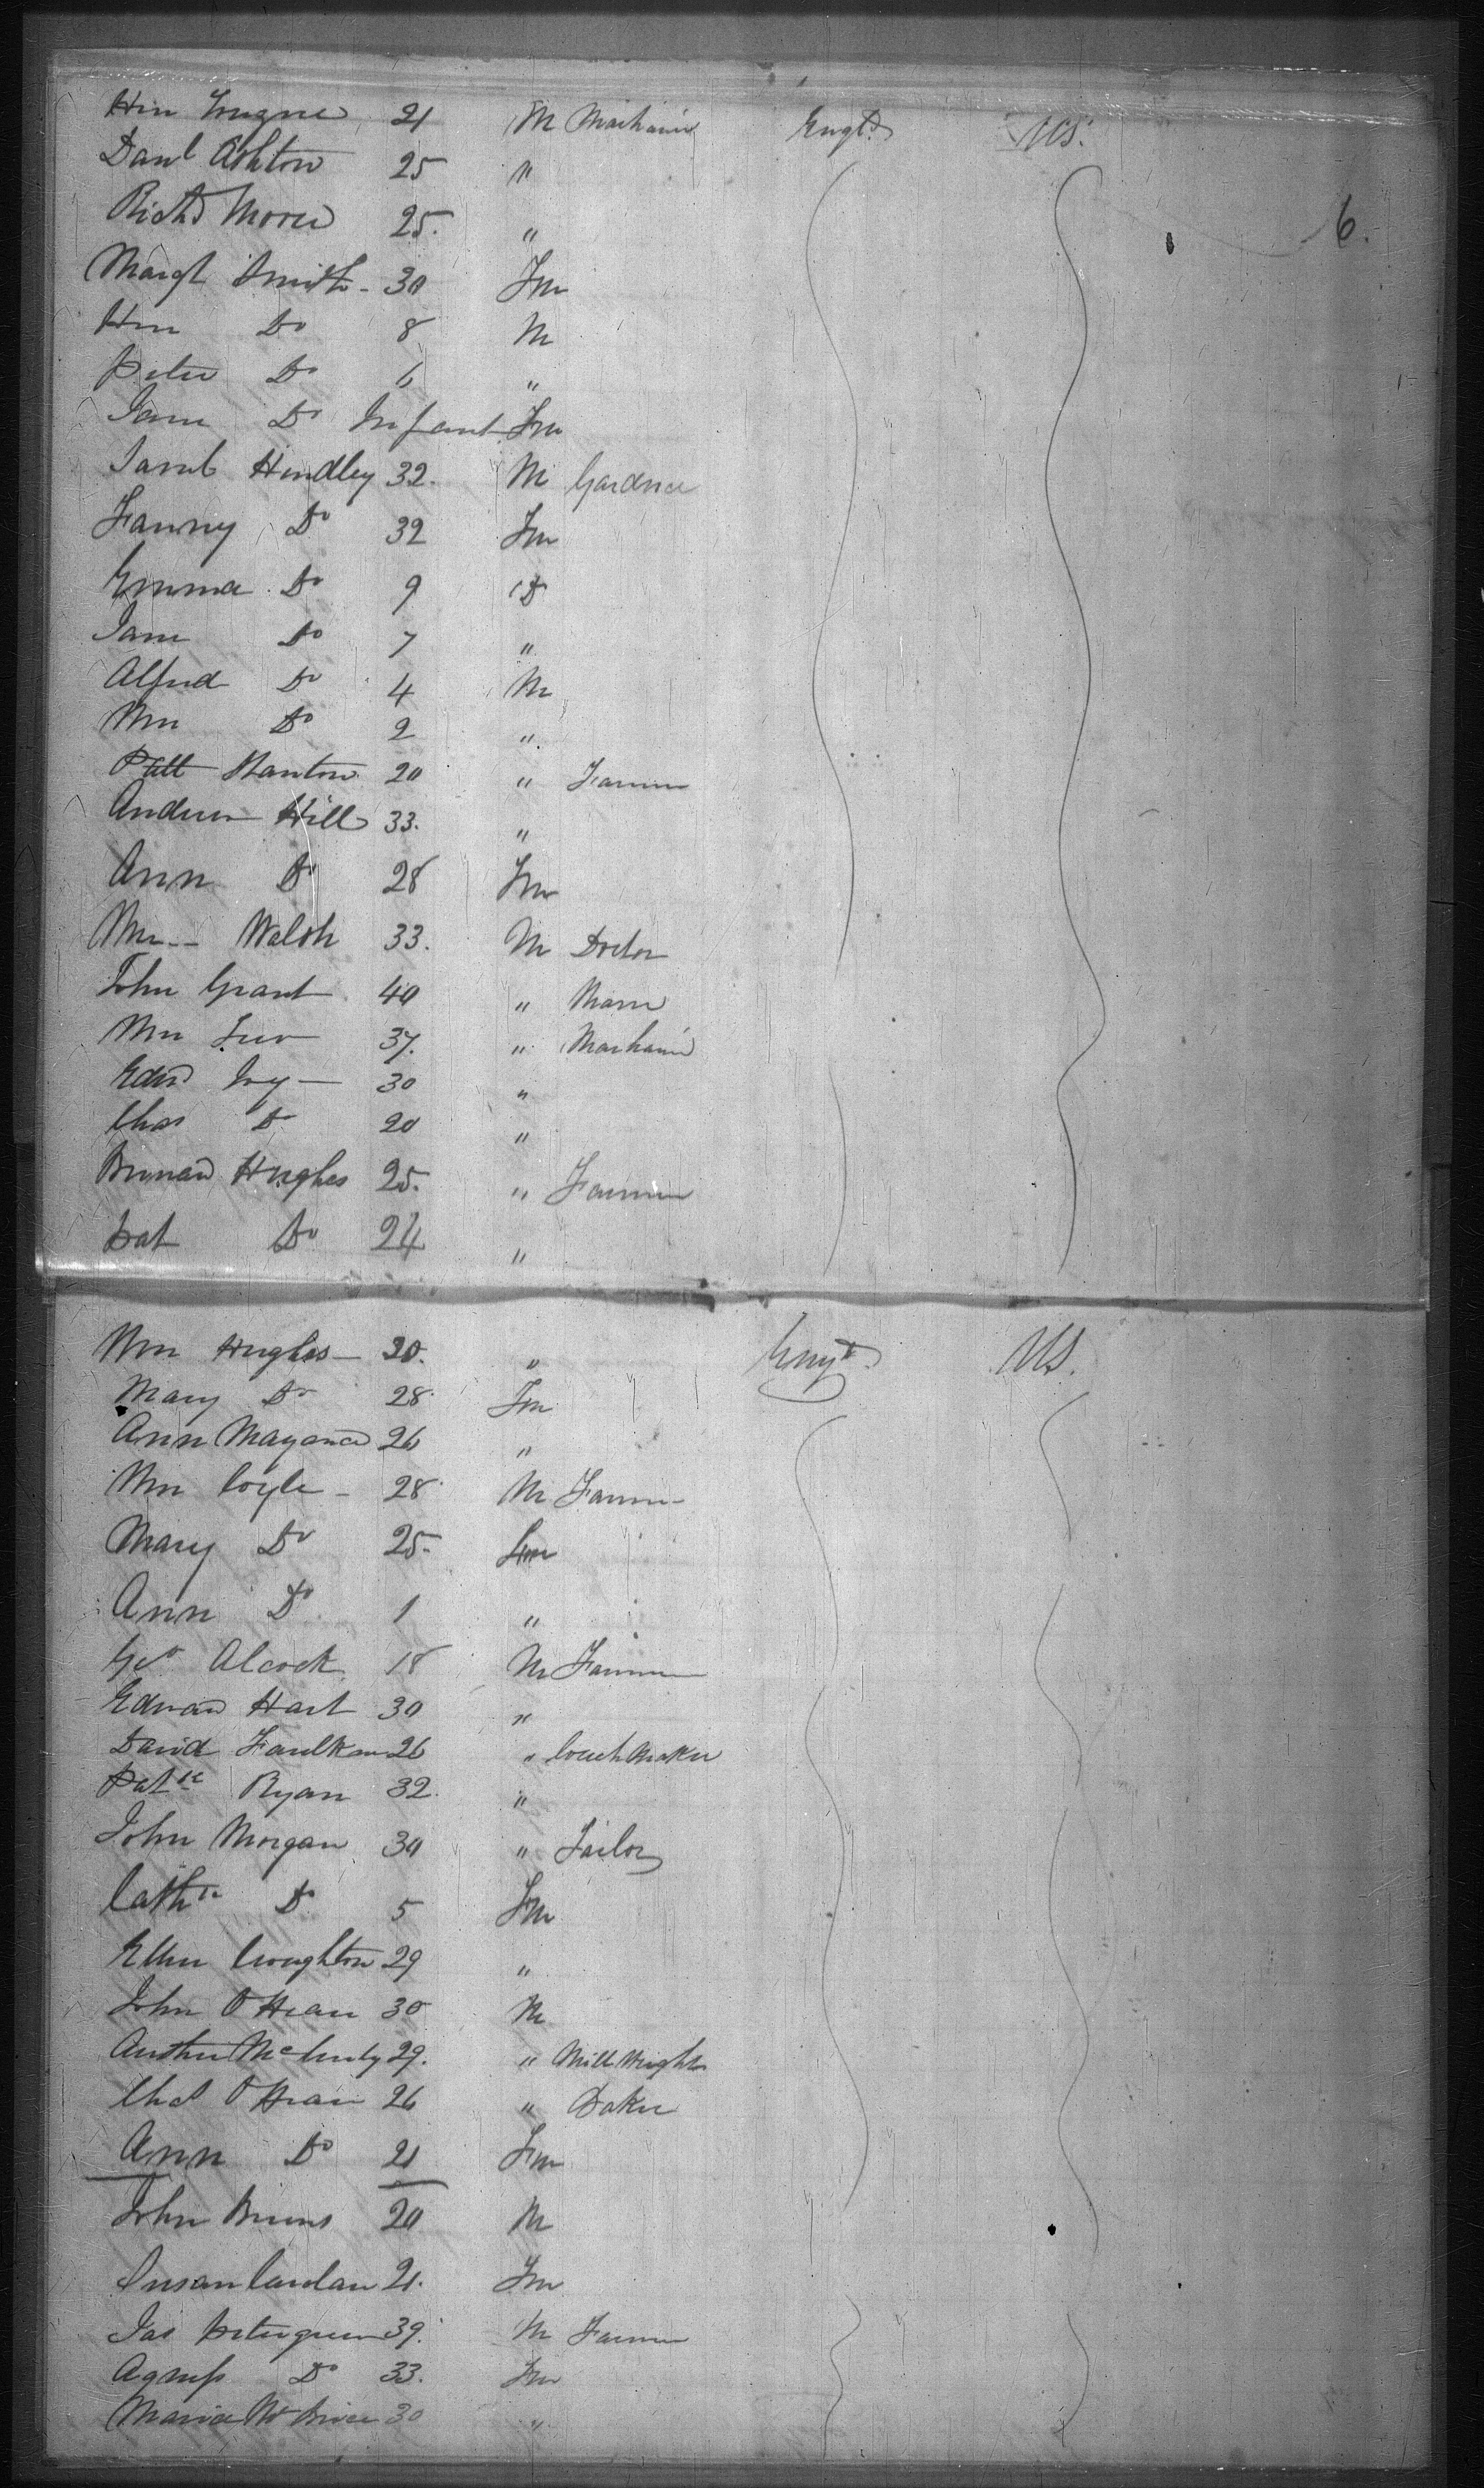 Wm 21 M Mechanic Engld US.
Danl Ashton 25 "
Richd Moore 25. " 6.
Margt Smith - 30 Fm
Wm Do 8 M
Peter Do 6 "
Jane Do Infant Fm
Saml Hindley 32. M Gardner
Fanny Do 32 Fm
Emma Do 9 Do
Jane Do 7 "
Alfred Do 4 M
Wm Do 2 "
Patt Stanton 20 " Farmer
Andrew Hill 33. "
Ann Do 28 Fm
Wm -- Walsh 33. M Doctor
John Grant 40 " Mason
Wm 37. " Mechanic
Edwd Ivy - 30 "
Chas Do 20 "
Bernard Hughes 25. " Farmer
Pat Do 24 "
Wm Hughes - 30. " Engd. US.
Mary Do 28 Fm
Ann 26 "
Wm Coyle - 28 M Farmer
Mary Do 25. Fm
Ann Do 1 "
Geo Alcock 18 M Farmer
Edward Hart 30 "
David Faulkner 26 " Coach Maker
Patk Ryan 32. "
John Morgan 30 " Tailor
Cathe Do 5 Fm
Ellen Croughton 29 "
John O'Hean 30 M
29. " Mill Wright
Chas O'Hean 26 " Baker
Ann Do 21 Fm
John Binns 20 M
Susan Candan 21. Fm
Jas Petergreen 39. M Farmer
Agness Do 33. Fm
Maria McBrice 30 "